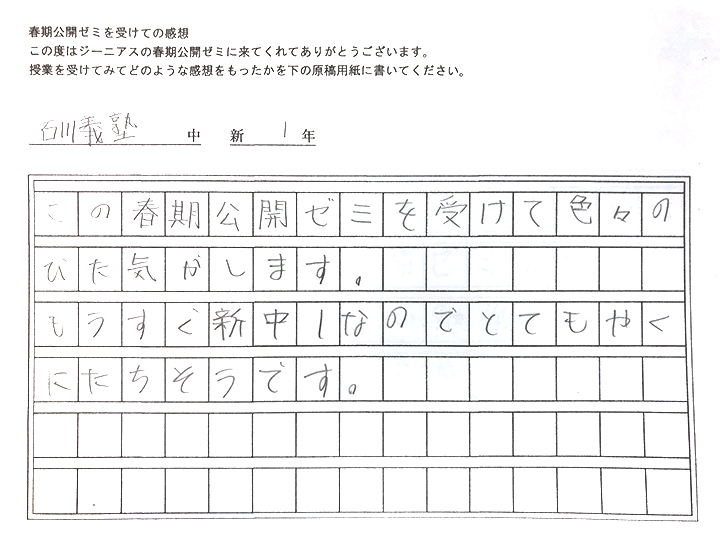 春期公開ゼミを受けての感想
この度はジーニアスの春期公開ゼミに来てくれてありがとうございます。
授業を受けてみてどのような感想をもったかを下の原稿用紙に書いてください。
石川義塾 中 新 1 年
この春期公開ゼミを受けて色々の
びた気がします。
もうすぐ新中1なのでとてもやく
にたちそうです。